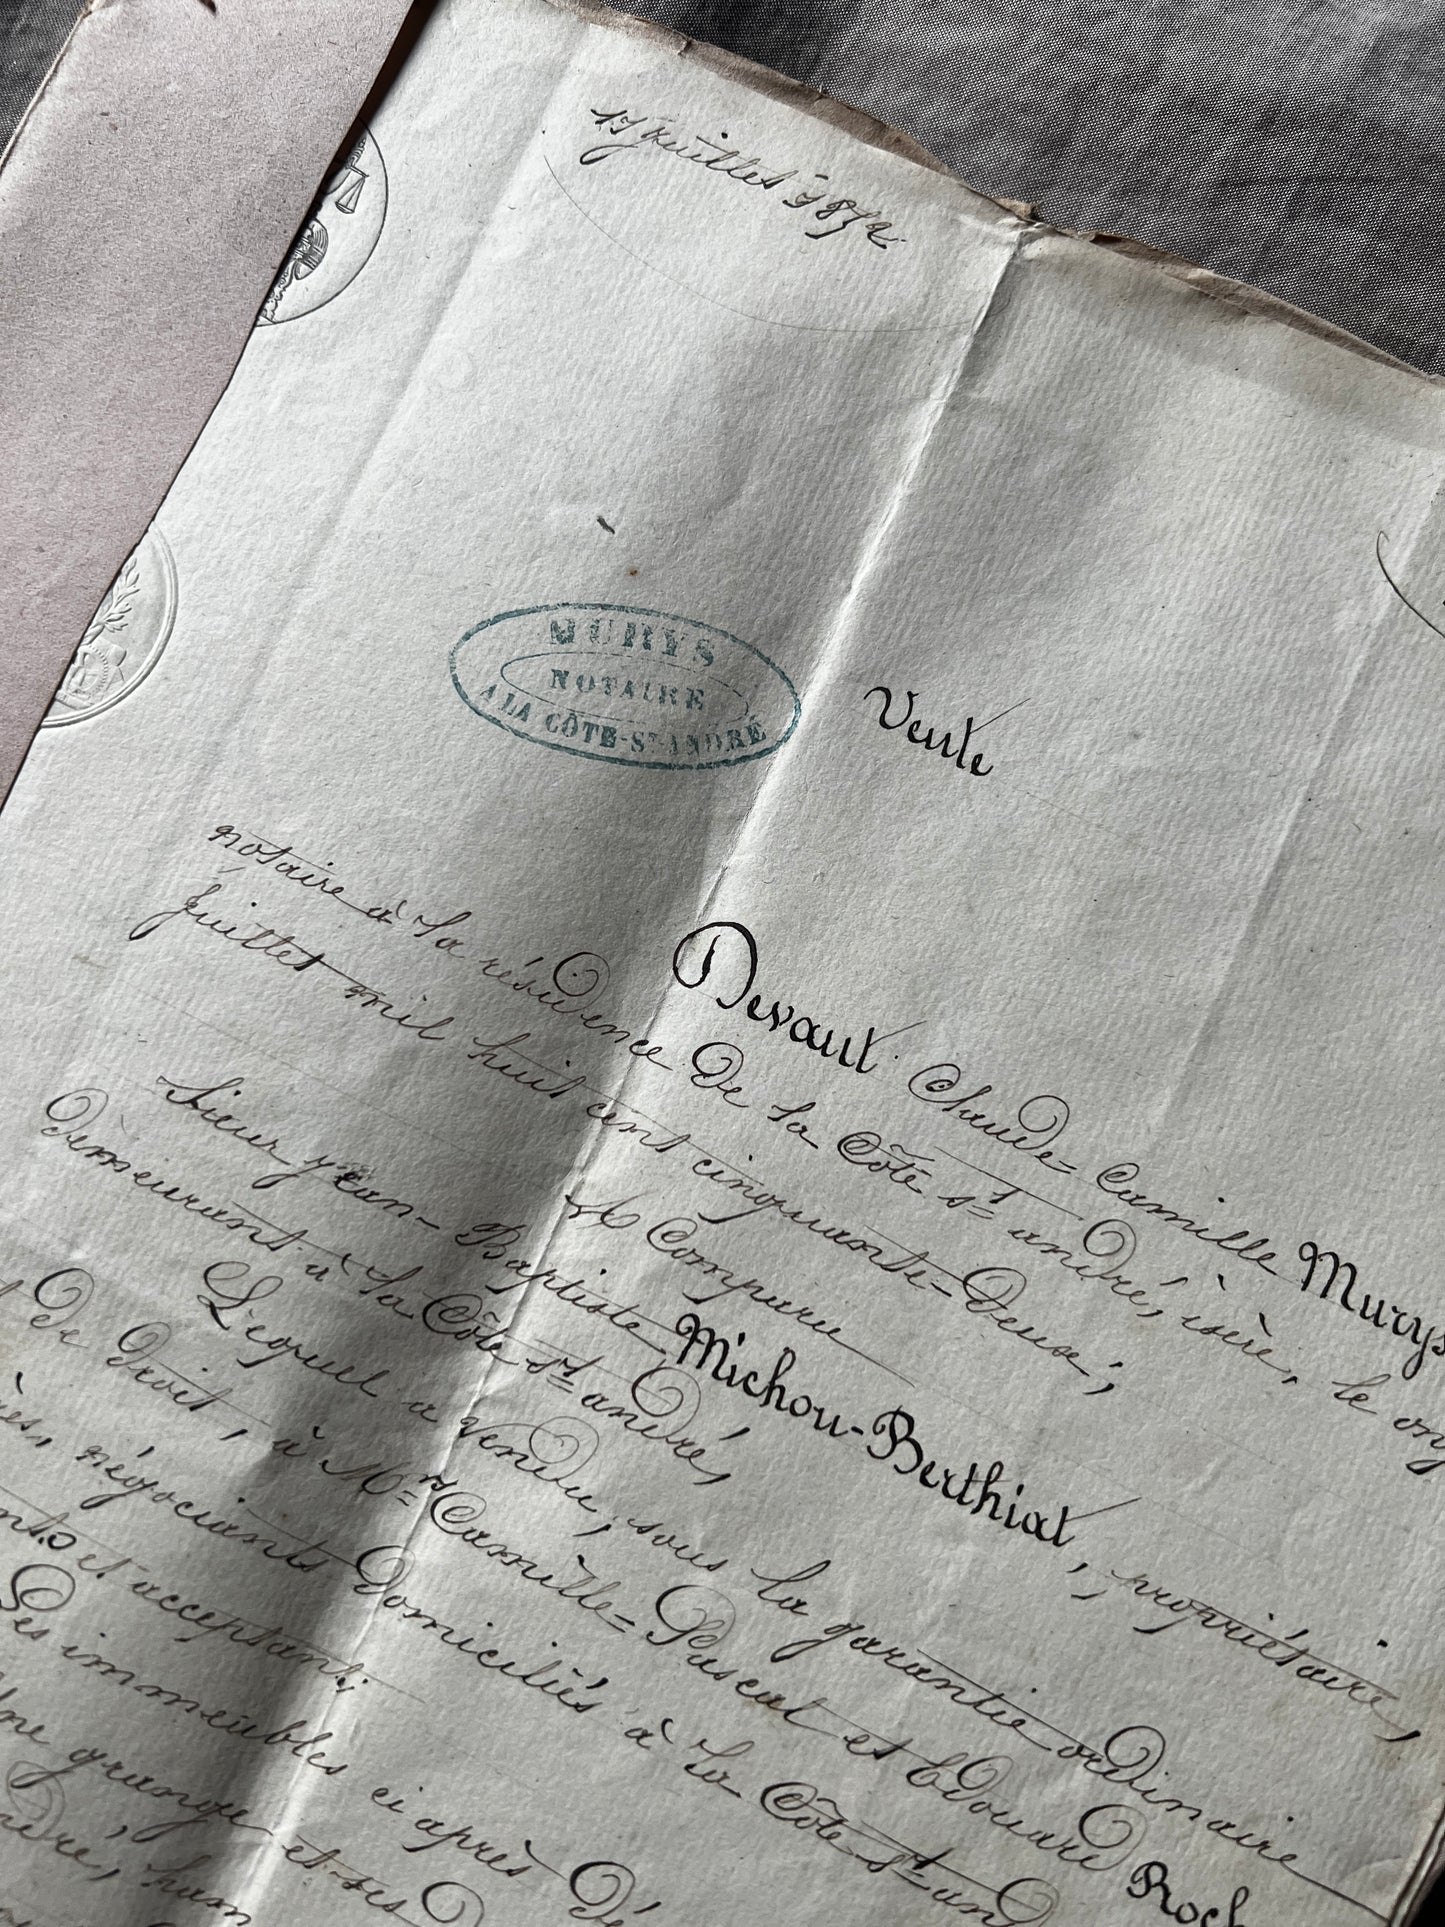 Juillet 1852
MURYS
NOTAIRE
A LA CÔTE-ST-ANDRÉ
Vente
Devant Claude=Camille Murys
notaire à la résidence de la Côte St andré, isère, le
juillet mil huit cent cinquante=deux;
A Comparu
Sieur jean-Baptiste Michou-Berthiat, propriétaire,
demeurant à la Côte St andré,
Lequel a vendu, sous la garantie ordinaire
de droit, à Mrs Camille=Pascal et Edouard
négociants domiciliés à la Côte St
et acceptant;
Les immeubles ci après
grange et ses